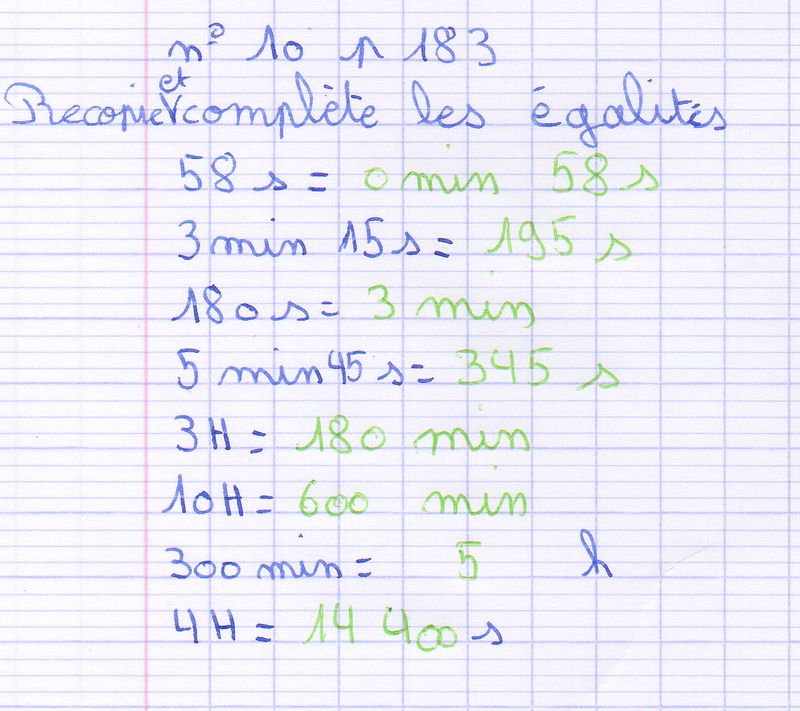 n° 10 p 183
Recopie et complète les égalités
58 s = 0 min 58 s
3 min 15 s = 195 s
180 s = 3 min
5 min 45 s = 345 s
3H = 180 min
10H = 600 min
300 min = 5 h
4H = 14 400 s